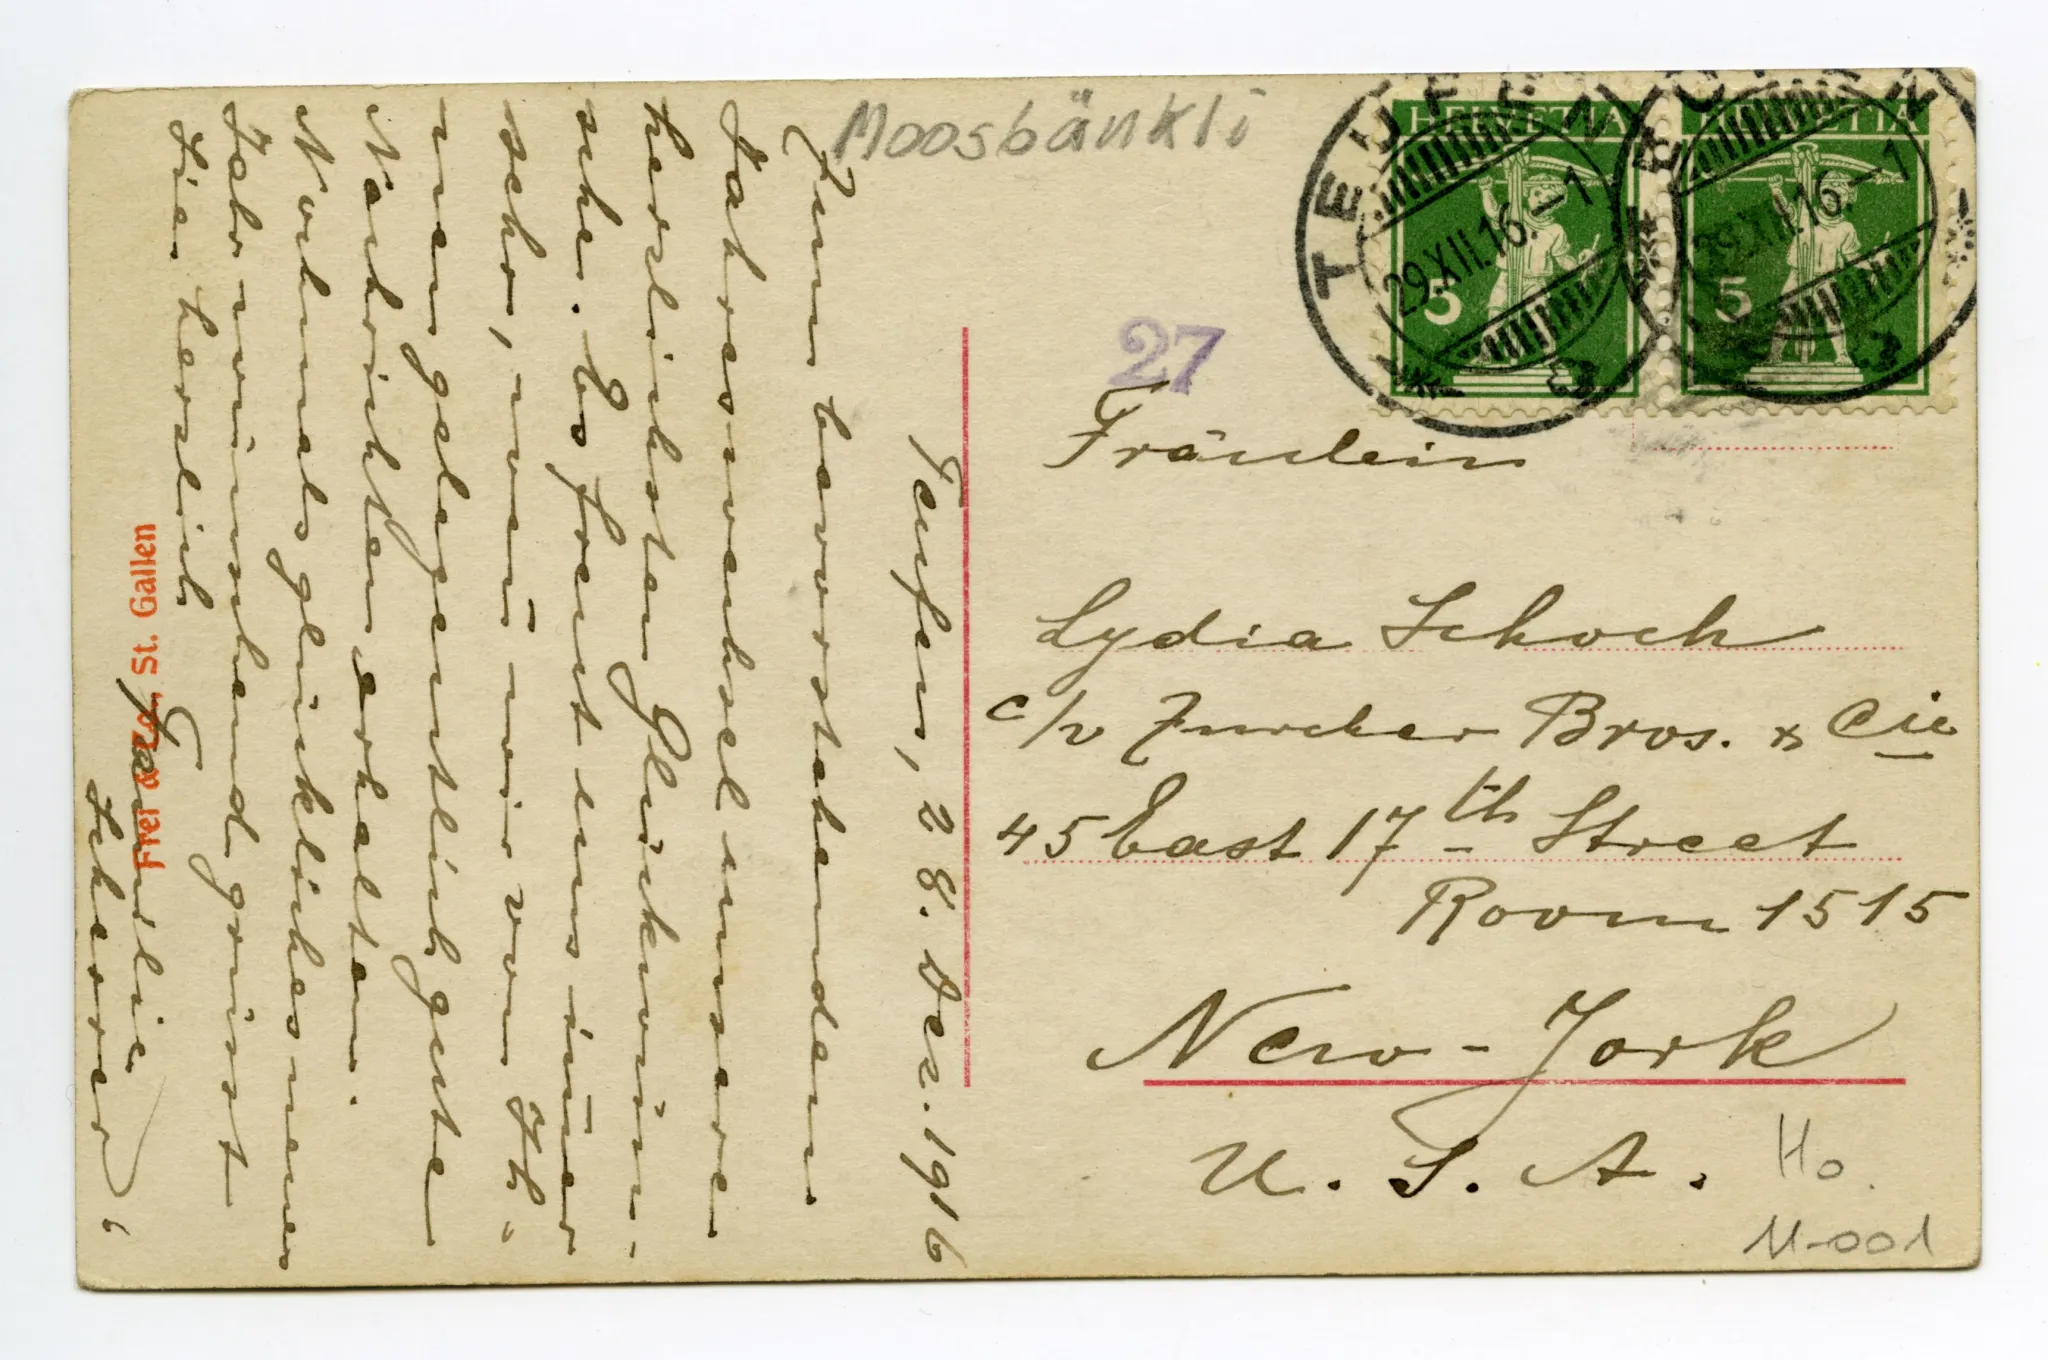 Moosbänkli
HELVETIA
HELVETIA
5
5
TEUFEN
29.XII.16.-1
TEUFEN
29.XII.16.-1
27
Fräulein
Lydia Schoch
c/o Zurcher Bros. & Cie
45 East 17th Street
Room 1515
New-York
U. S. A.
Ho.
M-001
Teufen, 28. Dez. 1916
Zum bevorstehenden
Jahreswechsel unsere
herzlichsten Glückwün-
sche. Es freut uns im̄er
sehr, wen̄ wir von Ih-
nen gelegentlich gute
Nachrichten erhalten.
Nochmals glückliches neues
Jahr wünschend grüsst
Sie herzlich
Familie
Scherrer
Frei & Co., St. Gallen